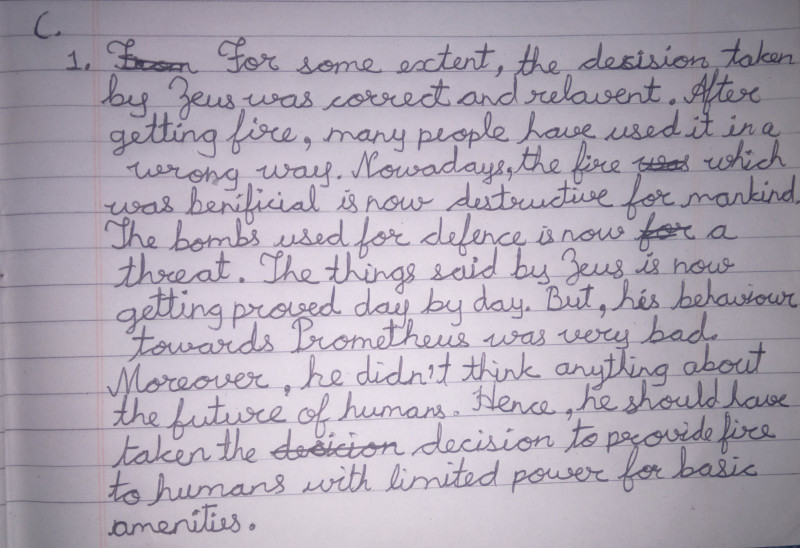 C.
1. From For some extent, the desision taken
by Zeus was correct and relavent. After
getting fire, many people have used it in a
wrong way. Nowadays, the fire was which
was benificial is now destructive for mankind.
The bombs used for defence is now for a
threat. The things said by Zeus is now
getting proved day by day. But, his behaviour
towards Prometheus was very bad.
Moreover, he didn't think anything about
the future of humans. Hence, he should have
taken the desicion decision to provide fire
to humans with limited power for basic
amenities.